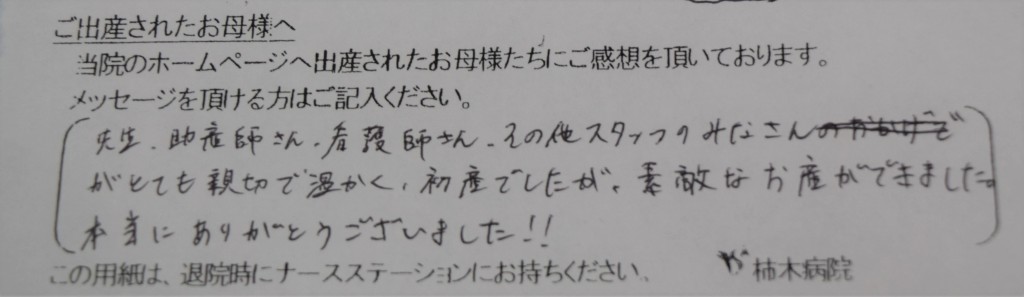 ご出産されたお母様へ
当院のホームページへ出産されたお母様たちにご感想を頂いております。
メッセージを頂ける方はご記入ください。
先生、助産師さん、看護師さん、その他スタッフのみなさんのおかげで
がとても親切で温かく、初産でしたが、素敵なお産ができました。
本当にありがとうございました!!
この用紙は、退院時にナースステーションにお持ちください。
柿木病院